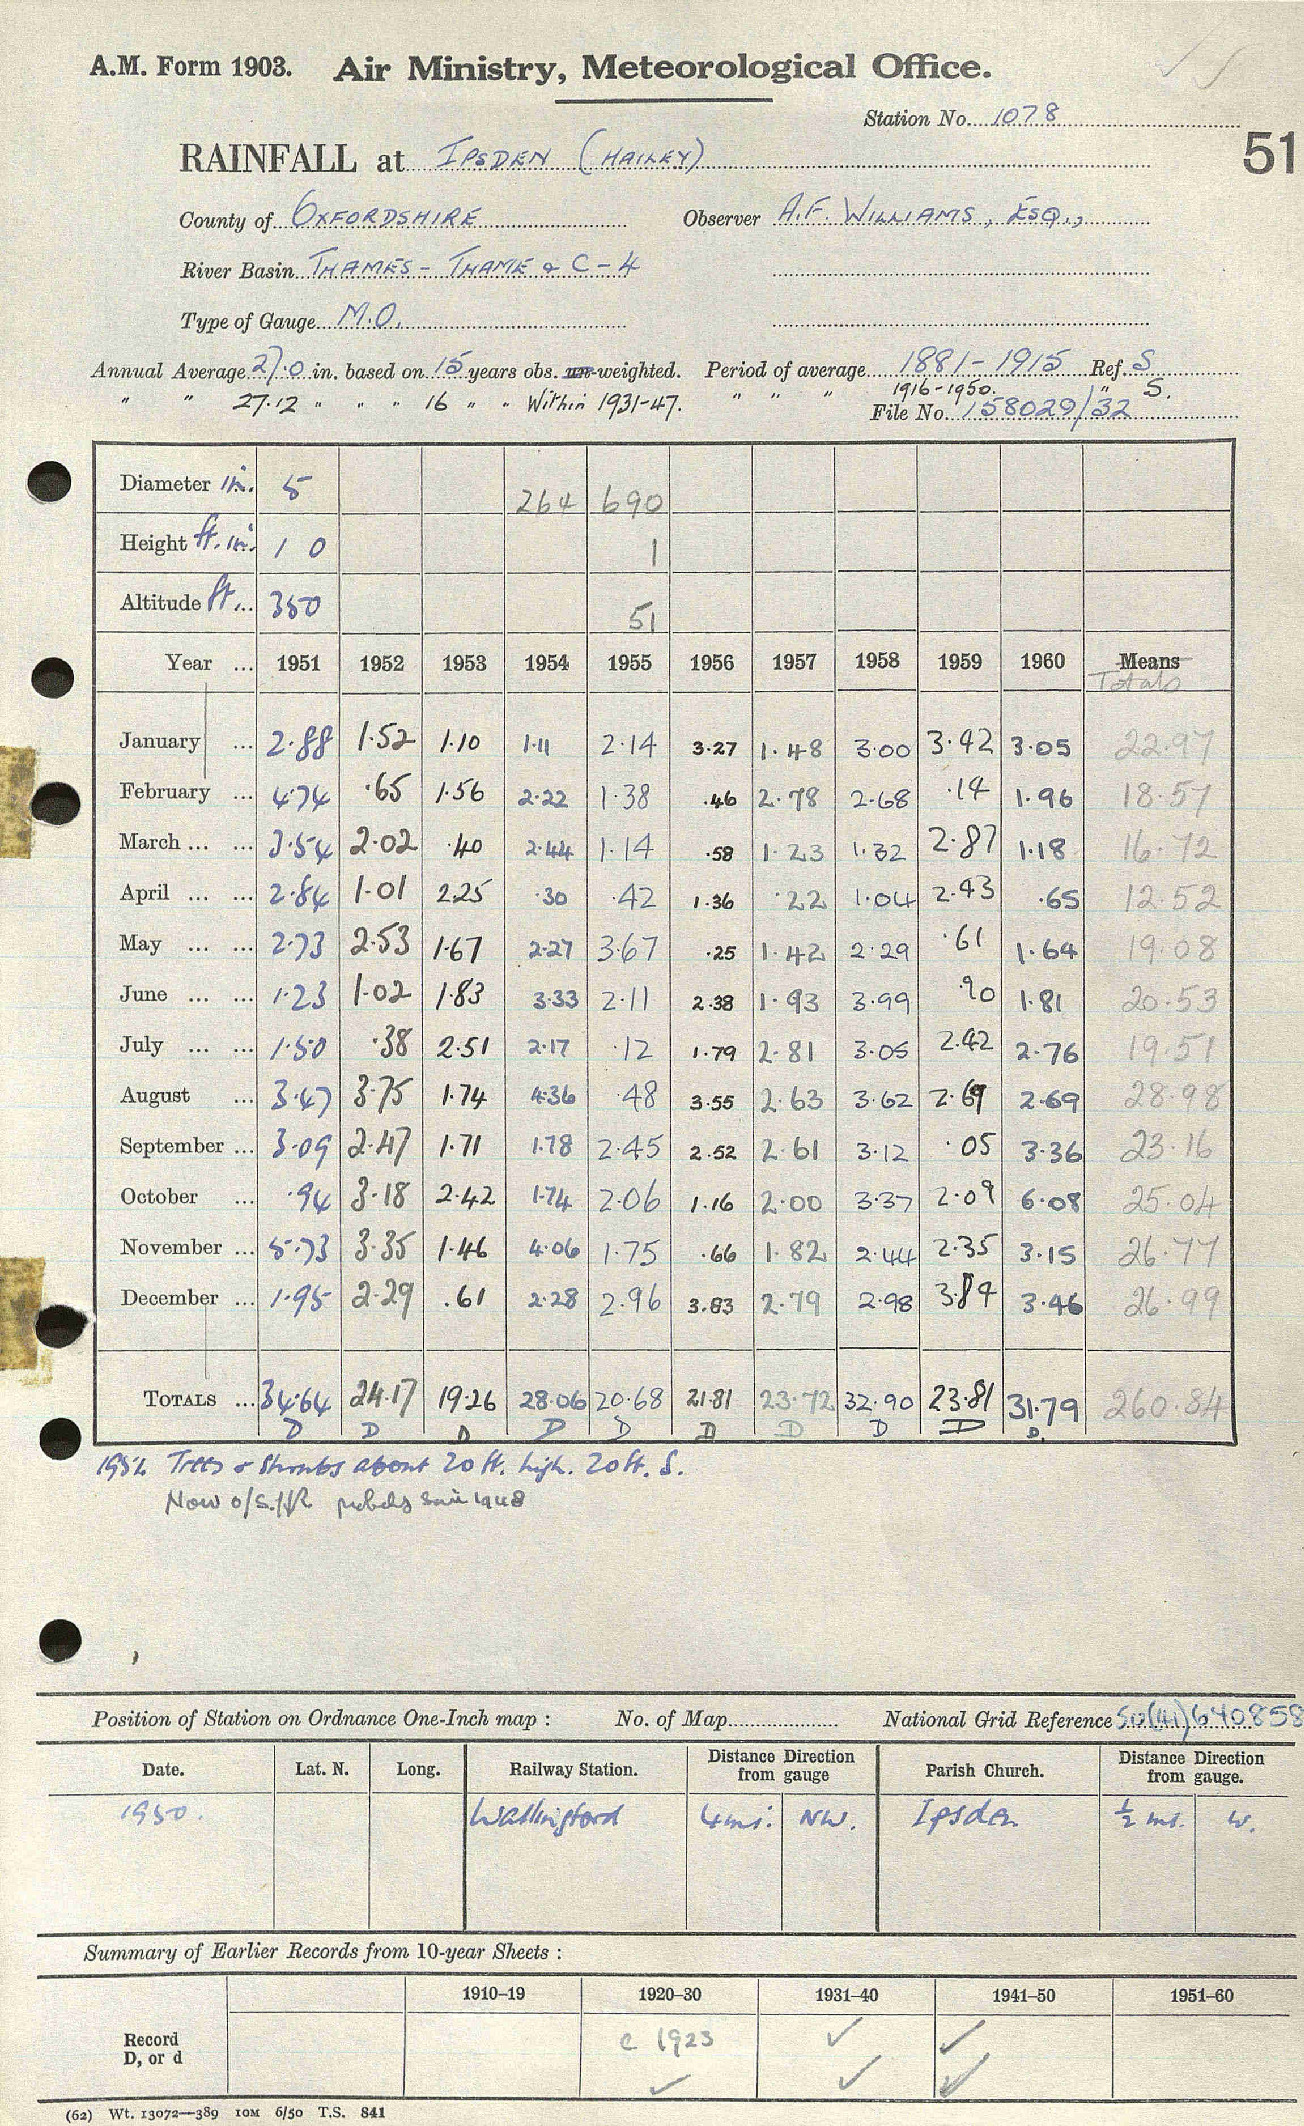 A.M. Form 1903. Air Ministry, Meteorological Office.
Station No. 1078
RAINFALL at IPSDEN (HAILEY)
51
County of OXFORDSHIRE Observer A.F. WILLIAMS, ESQ.,
River Basin THAMES - THAME & C - 4
Type of Gauge M.O.
Annual Average 27.0 in. based on 15 years obs. un-weighted. Period of average 1881-1915 Ref. S
" " 27.12 " " " 16 " " Within 1931-47. " " " 1916-1950. " S.
File No. 158029/32
Diameter in. 5 264 690
Height ft. in. 1 0 1
Altitude ft. 350 51
Year ... 1951 1952 1953 1954 1955 1956 1957 1958 1959 1960 Means
Totals
January ... 2.88 1.52 1.10 1.11 2.14 3.27 1.48 3.00 3.42 3.05 22.97
February ... 4.74 .65 1.56 2.22 1.38 .46 2.78 2.68 .14 1.96 18.57
March ... ... 3.54 2.02 .40 2.44 1.14 .58 1.23 1.32 2.87 1.18 16.72
April ... ... 2.84 1.01 2.25 .30 .42 1.36 .22 1.04 2.43 .65 12.52
May ... ... 2.73 2.53 1.67 2.27 3.67 .25 1.42 2.29 .61 1.64 19.08
June ... ... 1.23 1.02 1.83 3.33 2.11 2.38 1.93 3.99 .90 1.81 20.53
July ... ... 1.50 .38 2.51 2.17 .12 1.79 2.81 3.05 2.42 2.76 19.51
August ... 3.47 3.75 1.74 4.36 .48 3.55 2.63 3.62 2.69 2.69 28.98
September ... 3.09 2.47 1.71 1.78 2.45 2.52 2.61 3.12 .05 3.36 23.16
October ... .94 3.18 2.42 1.74 2.06 1.16 2.00 3.37 2.09 6.08 25.04
November ... 5.73 3.35 1.46 4.06 1.75 .66 1.82 2.44 2.35 3.15 26.77
December ... 1.95 2.29 .61 2.28 2.96 3.83 2.79 2.98 3.84 3.46 26.99
TOTALS ... 34.64 24.17 19.26 28.06 20.68 21.81 23.72 32.90 23.81 31.79 260.84
D D D D D D D D D D.
1952 Trees & shrubs about 20 ft. high. 20 ft. S.
Now probably since 1948
Position of Station on Ordnance One-Inch map : No. of Map National Grid Reference SU(41)640858
Date. Lat. N. Long. Railway Station. Distance from gauge Direction Parish Church. Distance from gauge. Direction
1950. Wallingford 4 mi. NW. Ipsden ½ mi. W.
Summary of Earlier Records from 10-year Sheets :
1910–19 1920–30 1931–40 1941–50 1951–60
Record c 1923 ✓ ✓
D, or d ✓ ✓ ✓
(62) Wt. 13072—389 10M 6/50 T.S. 841